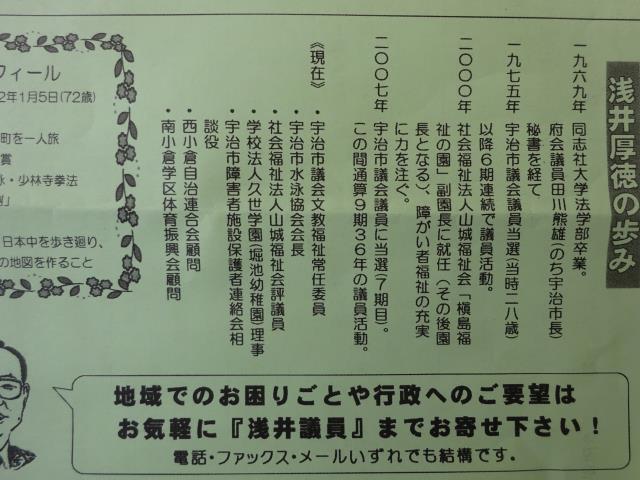 浅井厚徳の歩み
一九六九年 同志社大学法学部卒業。
府会議員田川熊雄(のち宇治市長)
秘書を経て
一九七五年 宇治市議会議員当選(当時二八歳)
以降6期連続で議員活動。
二〇〇〇年 社会福祉法人山城福祉会「槇島福
祉の園」副園長に就任(その後園
長となる)、障がい者福祉の充実
に力を注ぐ。
二〇〇七年 宇治市議会議員に当選(7期目)。
この間通算9期36年の議員活動。
《現在》・宇治市議会文教福祉常任委員
・宇治市水泳協会会長
・社会福祉法人山城福祉会評議員
・学校法人久世学園(堀池幼稚園)理事
・宇治市障害者施設保護者連絡会相
談役
・西小倉自治連合会顧問
・南小倉学区体育振興会顧問
フィール
2年1月5日(72歳)
町を一人旅
賞
・少林寺拳法
」
日本中を歩き廻り、
の地図を作ること
地域でのお困りごとや行政へのご要望は
お気軽に『浅井議員』までお寄せ下さい!
電話・ファックス・メールいずれでも結構です。